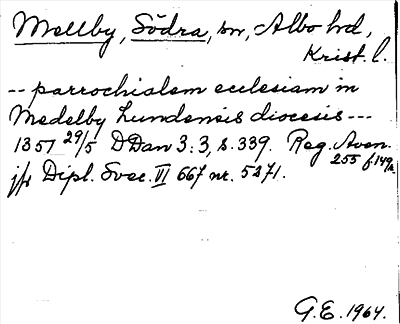 Mellby, Södra, sn, Albo hd,
Krist. l.
-- parrochialem ecclesiam in
Medelby Lundensis diocesis ---
1351 29/5 DDan 3:3, s. 339. Reg. Aven.
255 f. 149r.
jfr Dipl. Svec. VI 667 nr. 5271.
G.E. 1964.